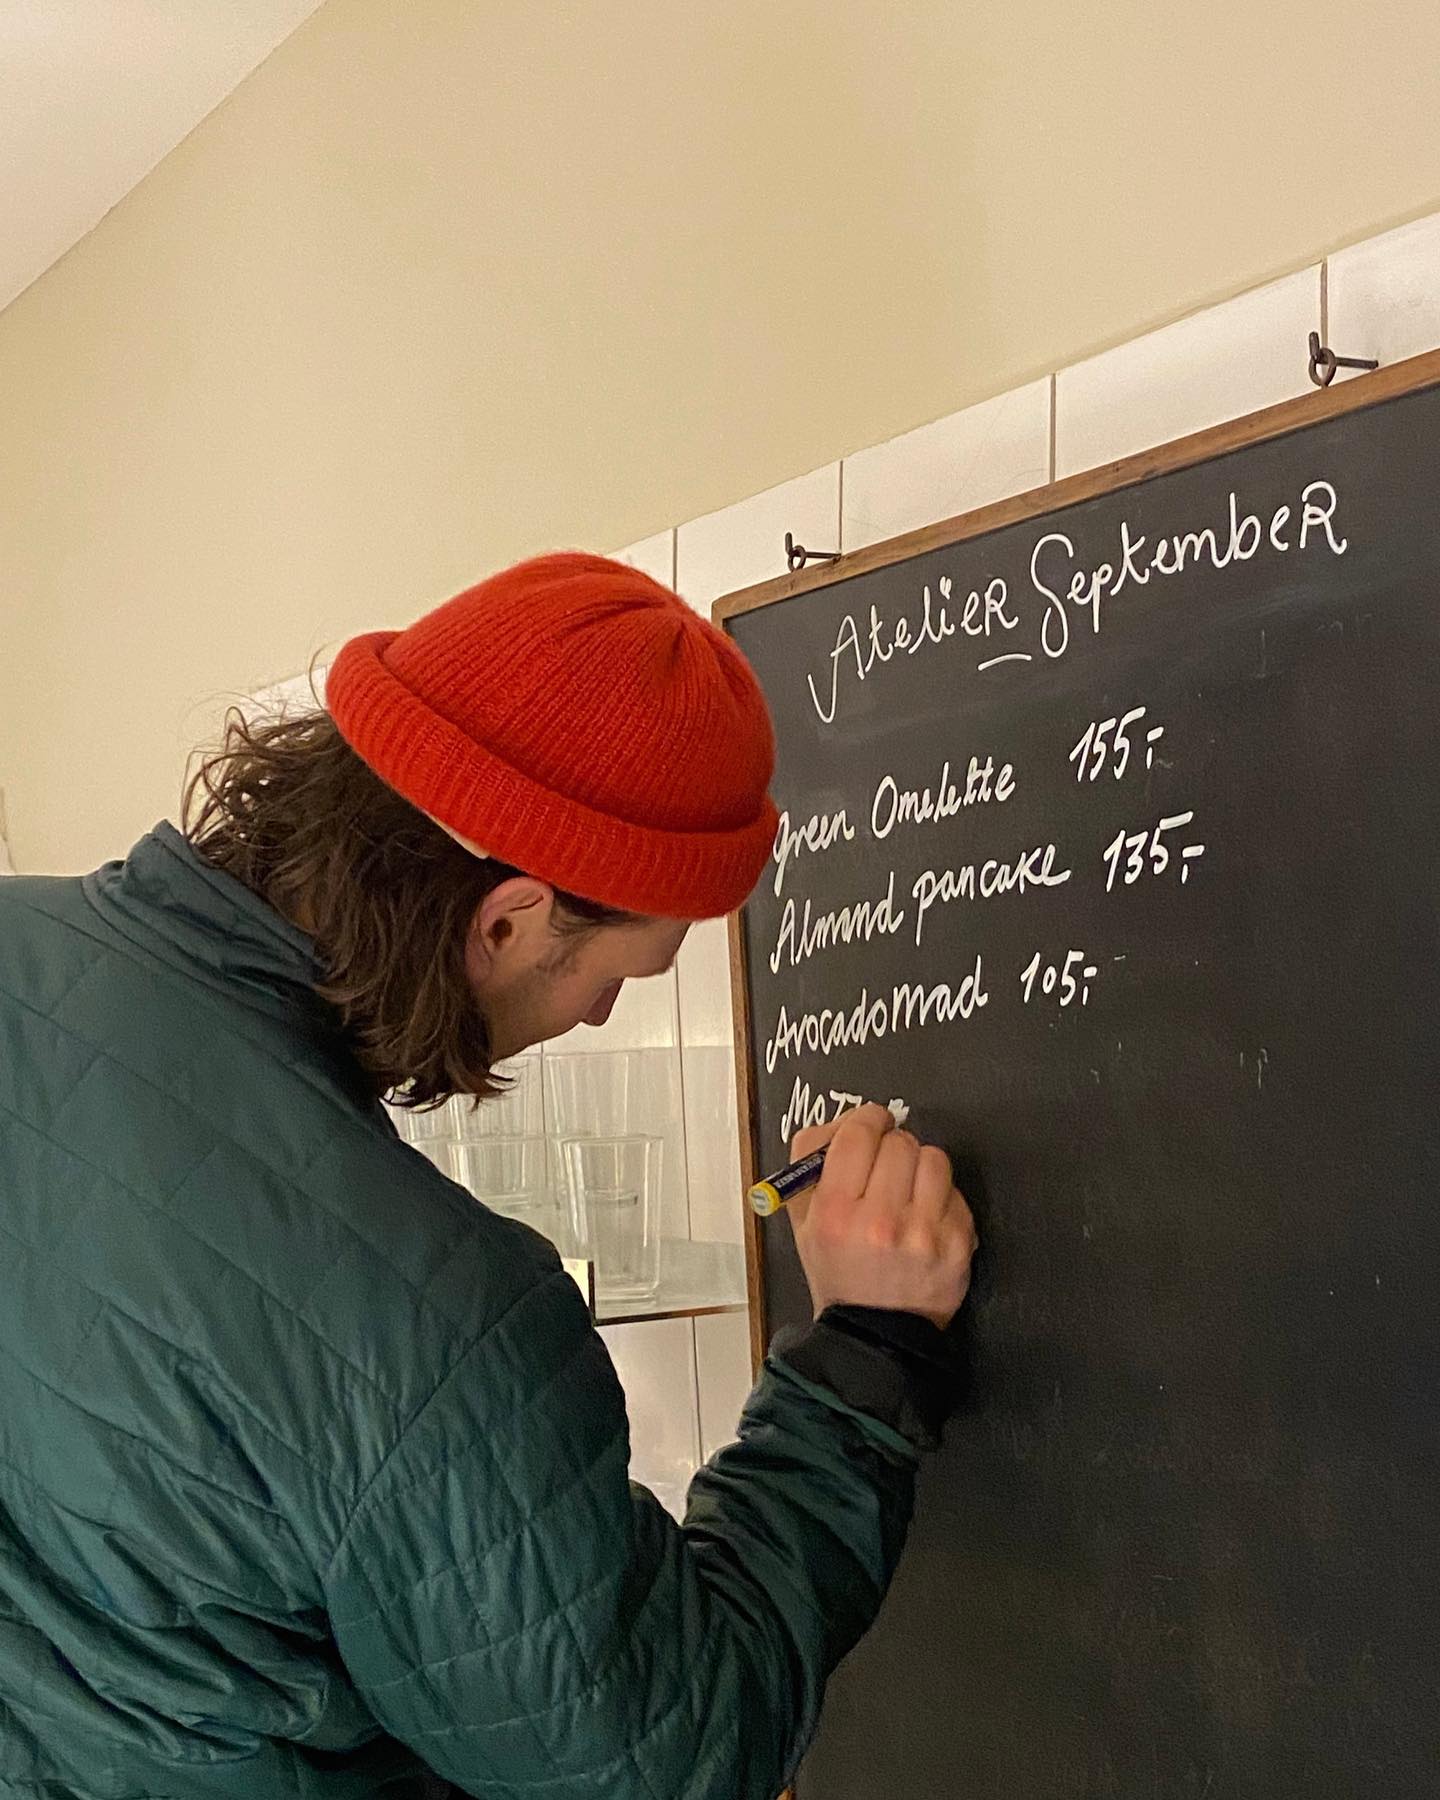 Atelier September
Green Omelette 155,-
Almond pancake 135,-
Avocadomad 105,-
Mozza